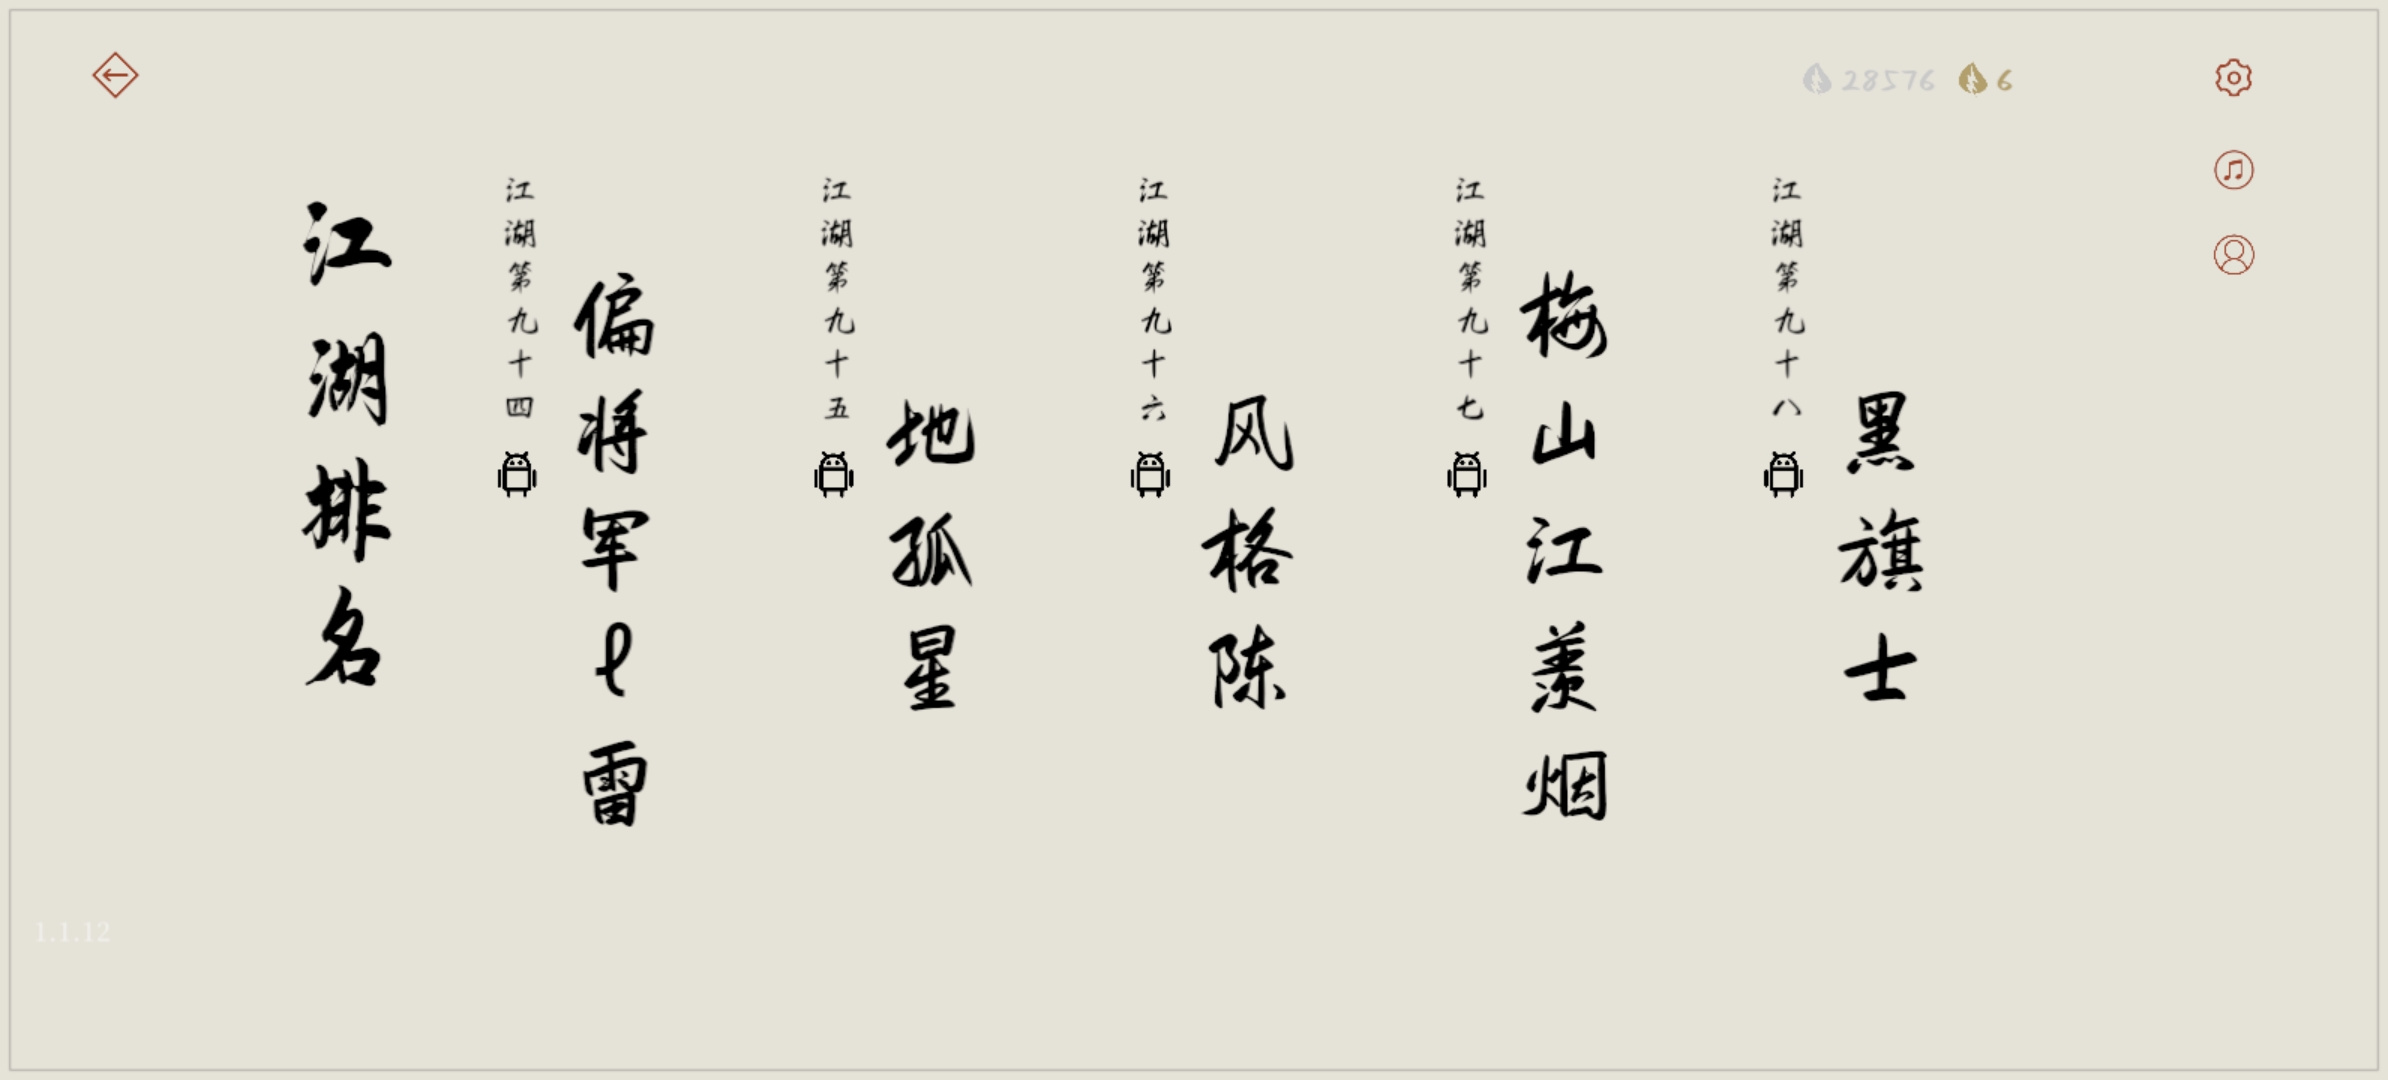 28576
6
江湖排名
江湖第九十四
偏将军ℓ雷
江湖第九十五
地孤星
江湖第九十六
风格陈
江湖第九十七
梅山江羡烟
江湖第九十八
黑旗士
1.1.12